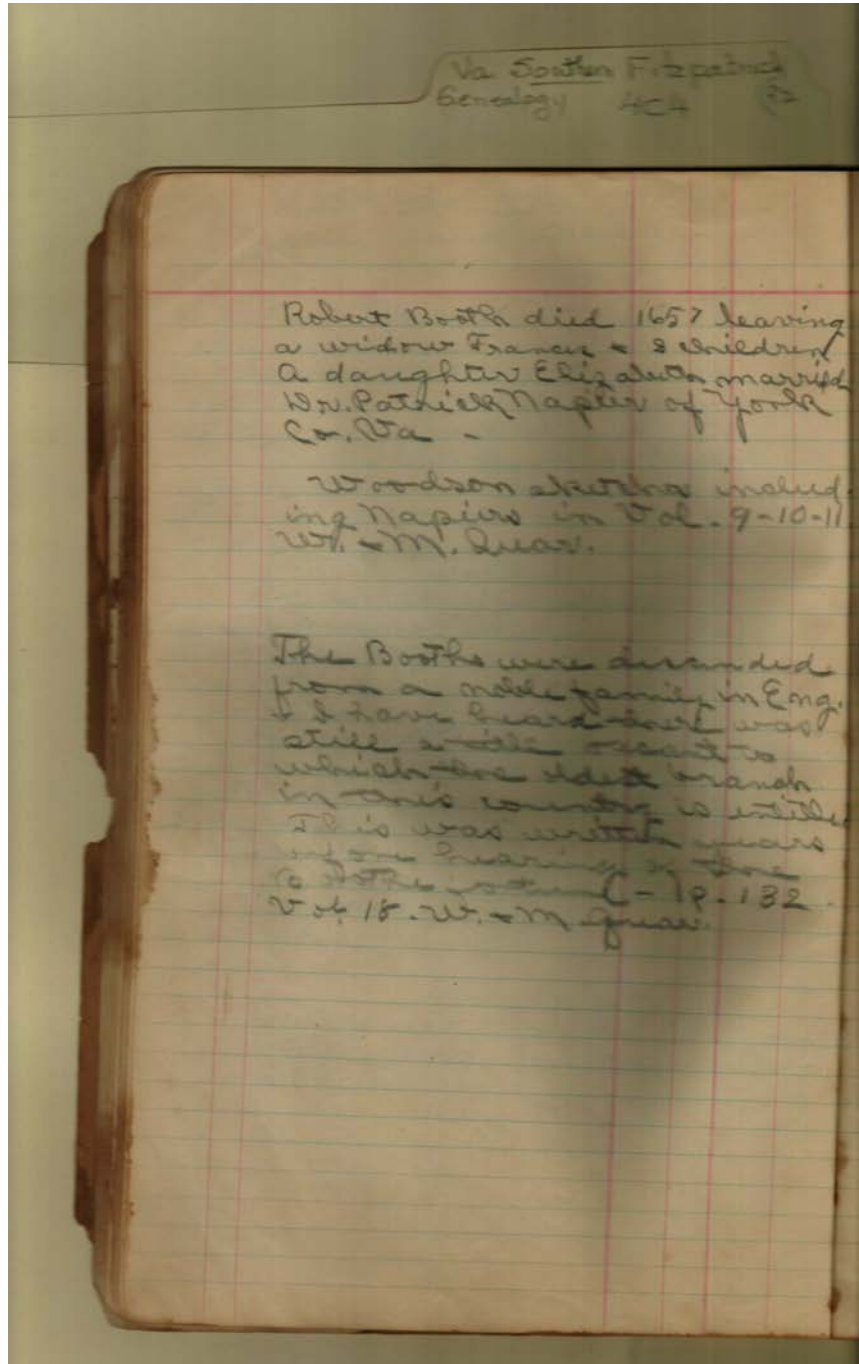 Va Southern Fitzpatrick
Genealogy 4C4
Robert Booth died 1657 leaving
a widow Frances & 8 children
A daughter Elizabeth married
Dr. Patrick Napier of York
Co. Va -
Woodson sketches includ-
ing Napiers in Vol. 9-10-11
W. & M. Quar.
The Booths were descended
from a noble family in Eng.
& I have heard there was
still a title vacant to
which the oldest branch
in this country is entitled
This was written years
before hearing of the
- p. 132
Vol. 18. W. & M Quar.